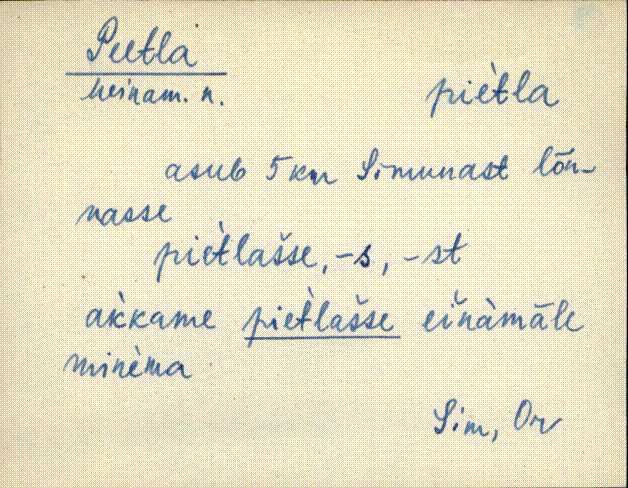 Peetla
heinam. n.
piètla
asub 5 km Simunast lõu-
nasse
piètlašse, -s, -st
ak̀kame piètlašse eìnàmāle
minèma
Sim, Or